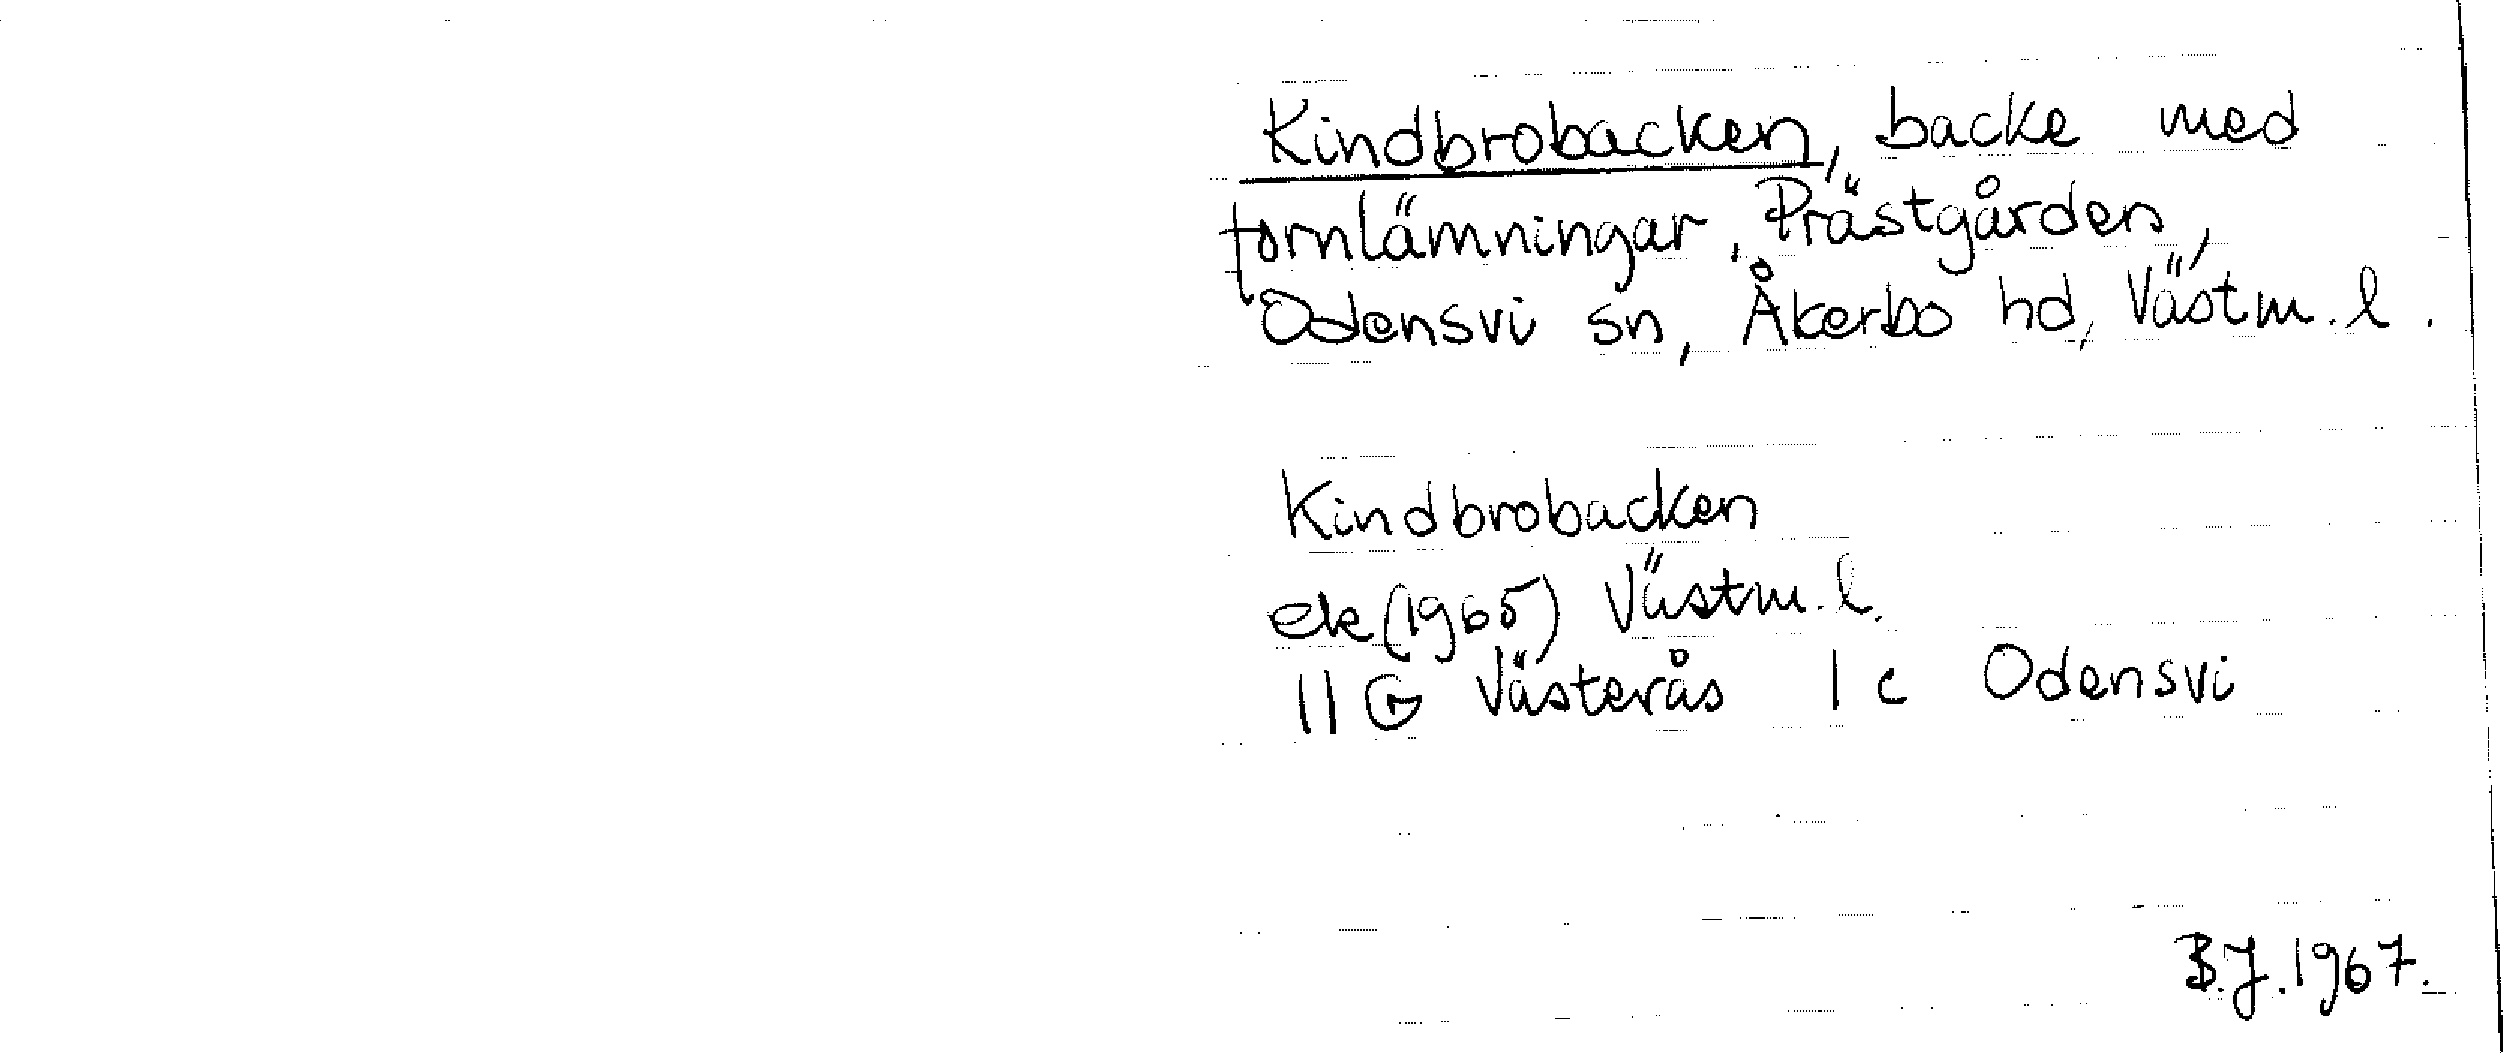 Kindbrobacken, backe med
fornlämningar, Prästgården,
Odensvi sn, Åkerbo hd, Västm. l.
Kindbrobacken
ek (1965) Västm. l.
11 G Västerås 1 c Odensvi
B.J. 1967.